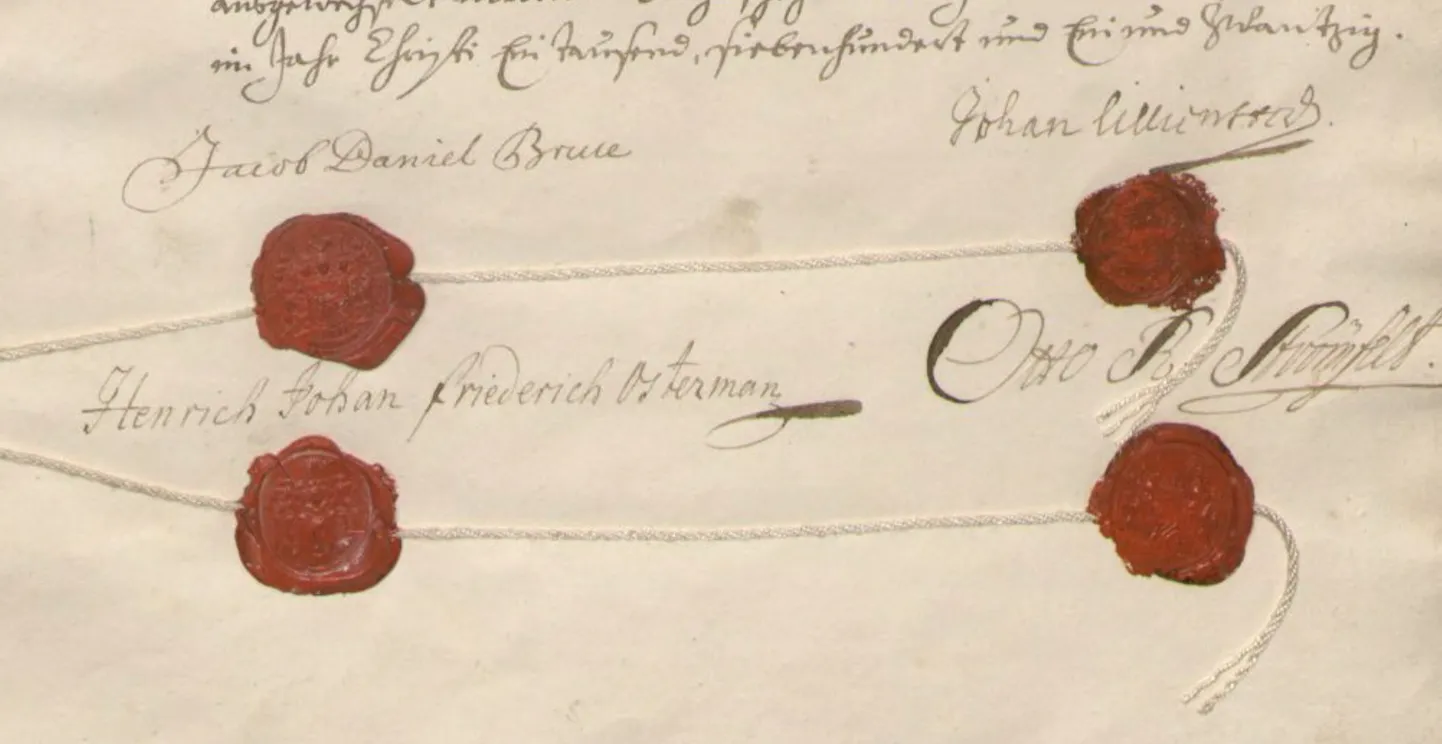 ausgewechselt
im Jahr Christi Ein tausend, siebenhundert und Ein und Zwantzig.
Jacob Daniel Bruce
Johan Lillienstedt.
Henrich Johan Friederich Osterman
Otto R. Strömfelt.